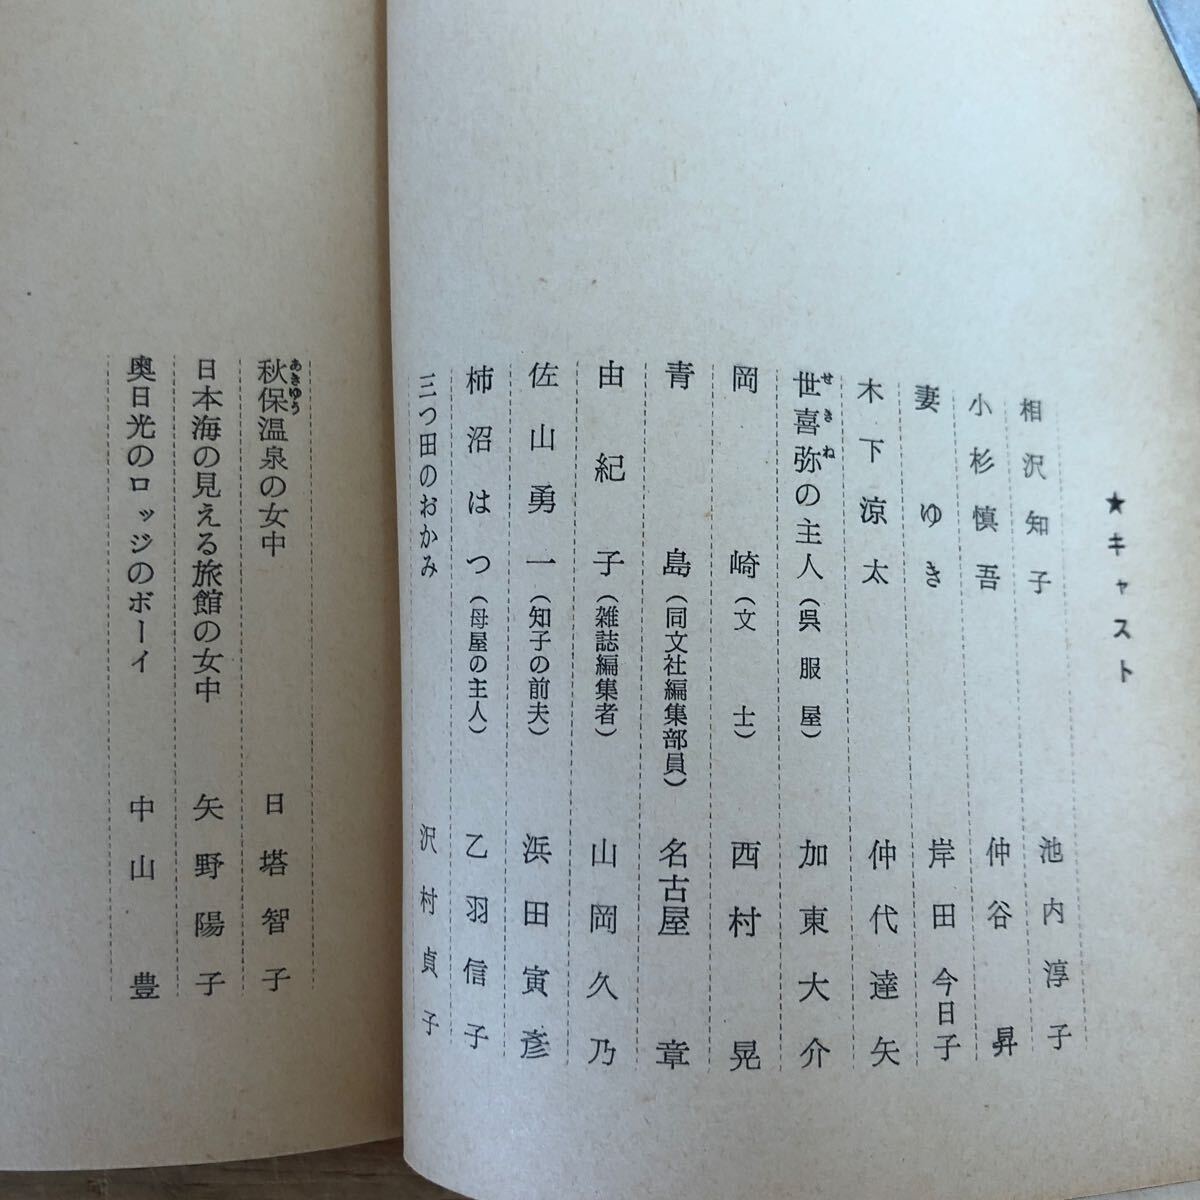 ★キャスト
相沢知子 池内淳子
小杉慎吾 仲谷昇
妻ゆき 岸田今日子
木下涼太 仲代達矢
世喜弥の主人（呉服屋） 加東大介
せきね
岡崎（文士） 西村晃
青島（同文社編集部員） 名古屋章
由紀子（雑誌編集者） 山岡久乃
佐山勇一（知子の前夫） 浜田寅彦
柿沼はつ（母屋の主人） 乙羽信子
三つ田のおかみ 沢村貞子
秋保温泉の女中 日塔智子
あきゆう
日本海の見える旅館の女中 矢野陽子
奥日光のロッジのボーイ 中山豊